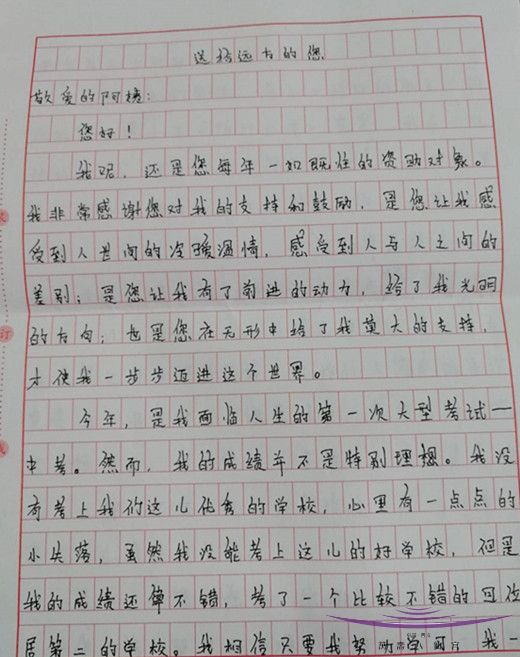 送给远方的您
敬爱的阿姨：
您好！
我呢，还是您每年一如既往的资助对象。
我非常感谢您对我的支持和鼓励，是您让我感
受到人世间的冷暖温情，感受到人与人之间的
差别；是您让我有了前进的动力，给了我光明
的方向；也是您在无形中给了我莫大的支持，
才使我一步步迈进这个世界。
今年，是我面临人生的第一次大型考试一
中考。然而，我的成绩并不是特别理想。我没
有考上我们这儿优秀的学校，心里有一点点的
小失落，虽然我没能考上这儿的好学校，但是
我的成绩还算不错，考了一个比较不错的可位
居第二的学校。我相信只要我努力学习，我一